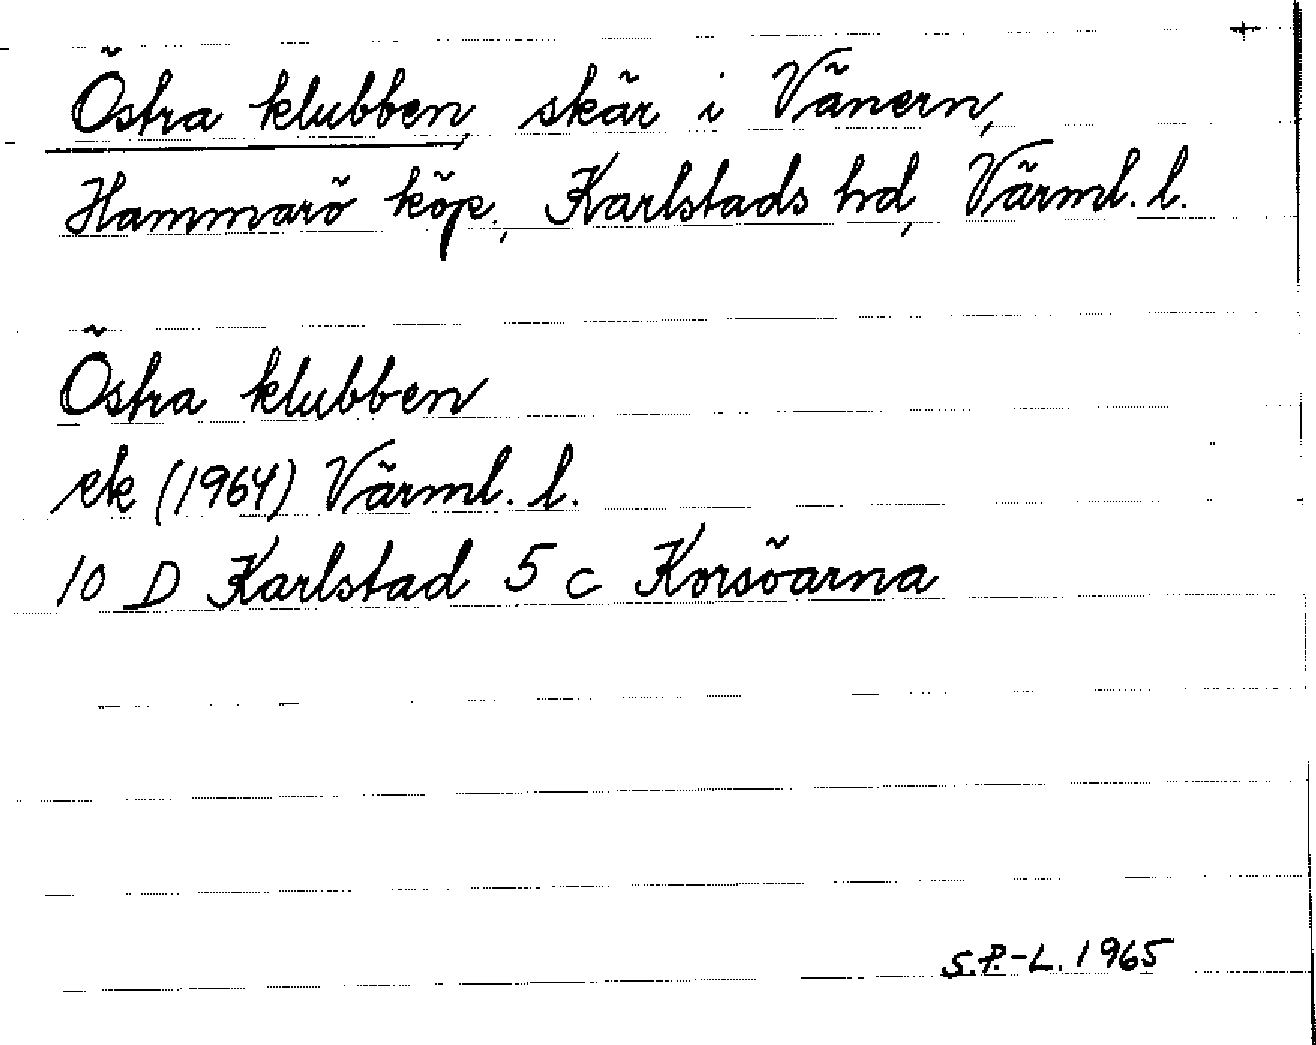 +
Östra klubben, skär i Vänern,
Hammarö köp., Karlstads hd, Värml. l.
Östra klubben
ek (1964) Värml. l.
10 D Karlstad 5 c Korsöarna
S.P.-L. 1965